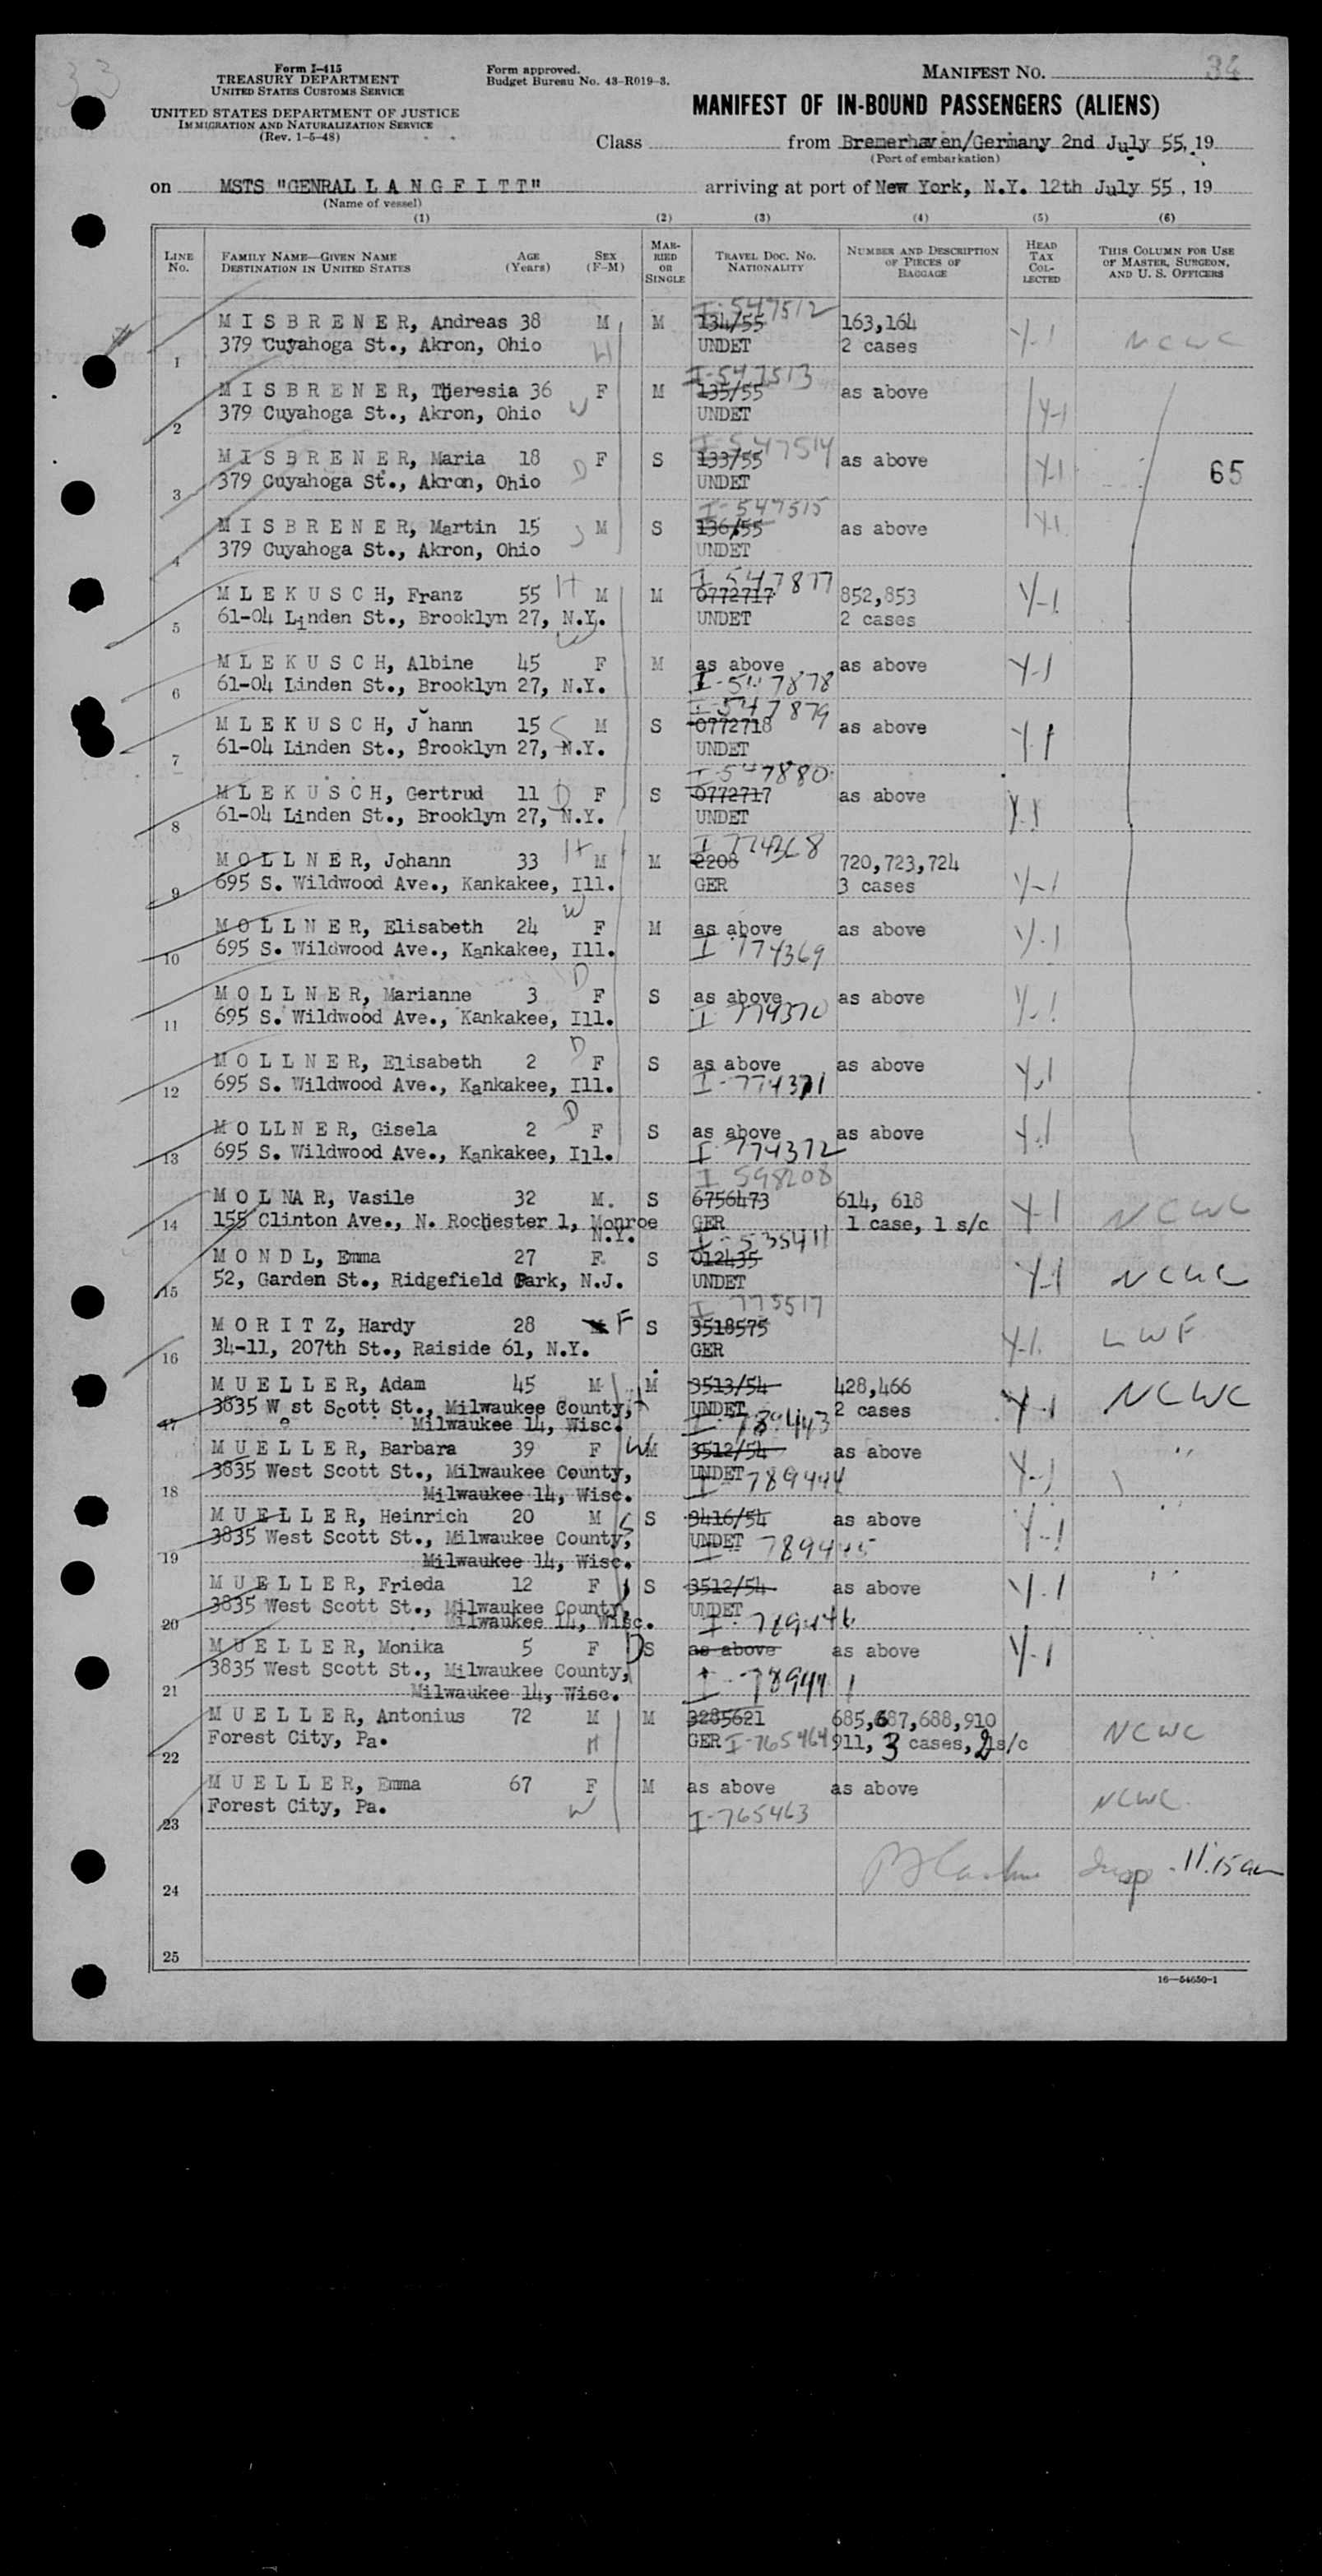 33
Form I-415
TREASURY DEPARTMENT
UNITED STATES CUSTOMS SERVICE
UNITED STATES DEPARTMENT OF JUSTICE
IMMIGRATION AND NATURALIZATION SERVICE
(Rev. 1-5-48)
Form approved.
Budget Bureau No. 43-R019-3.
MANIFEST NO. 34
MANIFEST OF IN-BOUND PASSENGERS (ALIENS)
Class from Bremerhaven/Germany 2nd July 55, 19
(Port of embarkation)
on MSTS "GENRAL L A N G F I T T" arriving at port of New York, N.Y. 12th July 55, 19
(Name of vessel)
(1) (2) (3) (4) (5) (6)
LINE No. FAMILY NAME—GIVEN NAME DESTINATION IN UNITED STATES AGE (Years) SEX (F-M) MARRIED OR SINGLE TRAVEL DOC. NO. NATIONALITY NUMBER AND DESCRIPTION OF PIECES OF BAGGAGE HEAD TAX COLLECTED THIS COLUMN FOR USE OF MASTER, SURGEON, AND U. S. OFFICERS
I-547512
M I S B R E N E R, Andreas 38 M M 134/55 163,164 Y-1 NCWC
1 379 Cuyahoga St., Akron, Ohio H UNDET 2 cases
I-547513
M I S B R E N E R, Theresia 36 F M 135/55 as above Y-1
2 379 Cuyahoga St., Akron, Ohio W UNDET
I-547514
M I S B R E N E R, Maria 18 D F S 133/55 as above Y-1 65
3 379 Cuyahoga St., Akron, Ohio UNDET
I-547515
M I S B R E N E R, Martin 15 S M S 136/55 as above Y-1
4 379 Cuyahoga St., Akron, Ohio UNDET
I-547877
M L E K U S C H, Franz 55 H M M 0772717 852,853 Y-1
5 61-04 Linden St., Brooklyn 27, N.Y. UNDET 2 cases
W
M L E K U S C H, Albine 45 F M as above as above Y-1
6 61-04 Linden St., Brooklyn 27, N.Y. I-547878
I-547879
M L E K U S C H, J hann 15 S M S 0772718 as above Y-1
7 61-04 Linden St., Brooklyn 27, N.Y. UNDET
I-547880
M L E K U S C H, Gertrud 11 D F S 0772717 as above Y-1
8 61-04 Linden St., Brooklyn 27, N.Y. UNDET
I 774368
M O L L N E R, Johann 33 H M M 2208 720,723,724 Y-1
9 695 S. Wildwood Ave., Kankakee, Ill. GER 3 cases
W
M O L L N E R, Elisabeth 24 F M as above as above Y-1
10 695 S. Wildwood Ave., Kankakee, Ill. I 774369
D
M O L L N E R, Marianne 3 F S as above as above Y-1
11 695 S. Wildwood Ave., Kankakee, Ill. I 774370
D
M O L L N E R, Elisabeth 2 F S as above as above Y-1
12 695 S. Wildwood Ave., Kankakee, Ill. I-774371
D
M O LL N E R, Gisela 2 F S as above as above Y-1
13 695 S. Wildwood Ave., Kankakee, Ill. I 774372
I 598208
M O L NA R, Vasile 32 M. S 6756473 614, 618 Y-1 NCWC
14 155 Clinton Ave., N. Rochester 1, Monroe N.Y. GER 1 case, 1 s/c
I-535411
M O N D L, Emma 27 F S 012435 Y-1 NCWC
15 52, Garden St., Ridgefield Park, N.J. UNDET
I 775517
M O R I T Z, Hardy 28 F S 3518575 Y-1 LWF
16 34-11, 207th St., Raiside 61, N.Y. GER
M U E L L E R, Adam 45 M M 3513/54 428,466 Y-1 NCWC
3835 W st Scott St., Milwaukee County, H UNDET 2 cases
17 e Milwaukee 14, Wisc. I-789443
M U E L L E R, Barbara 39 F W M 3512/54 as above Y-1 "
3835 West Scott St., Milwaukee County, UNDET
18 Milwaukee 14, Wisc. I 789444
M U E L L E R, Heinrich 20 M S S 3416/54 as above Y-1 "
3835 West Scott St., Milwaukee County, UNDET
19 Milwaukee 14, Wisc. I-789445
M U E L L E R, Frieda 12 F S 3512/54 as above Y-1 "
3835 West Scott St., Milwaukee County, UNDET
20 Milwaukee 14, Wisc. I-789446
M U E L L E R, Monika 5 F D S as above as above Y-1
3835 West Scott St., Milwaukee County,
21 Milwaukee 14, Wisc.
M U E L L E R, Antonius 72 M M 3285621 685,687,688,910 NCWC
22 Forest City, Pa. H GER I-765464 911, 3 cases, 2 s/c
M U E L L E R, Emma 67 F M as above as above NCWC
23 Forest City, Pa. W I-765463
24 Insp. 11:15 am
25
16—54650-1